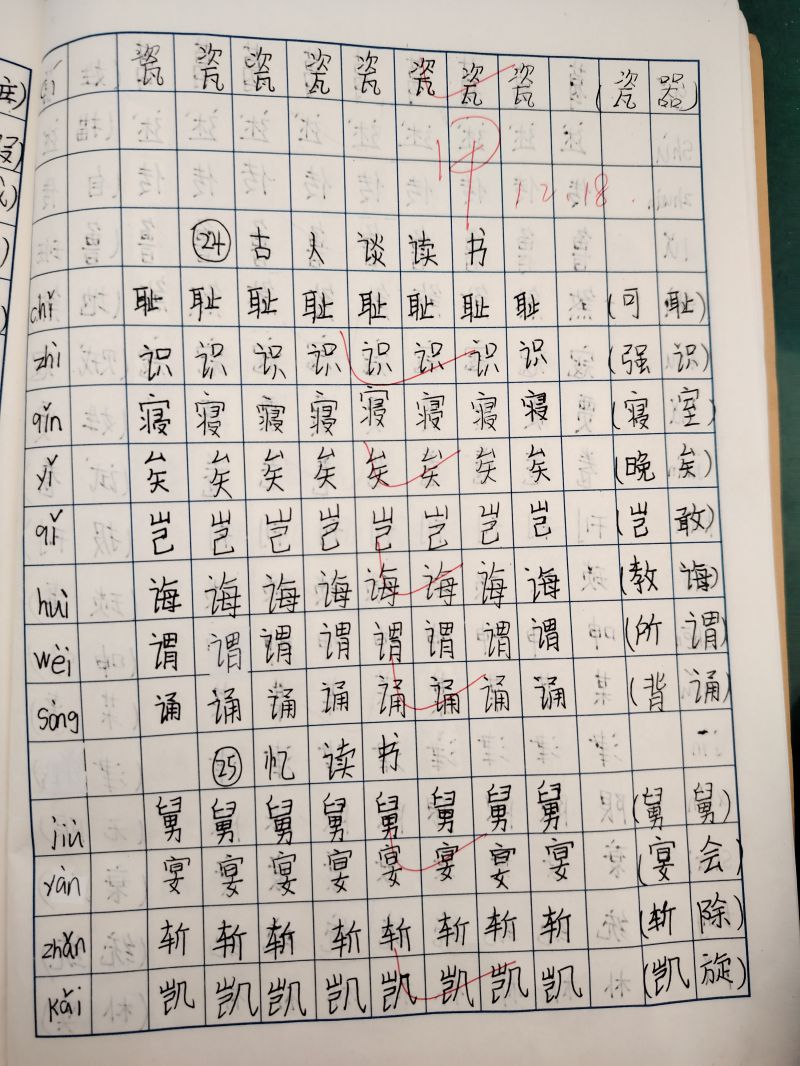 瓷 瓷 瓷 瓷 瓷 瓷 瓷 瓷 (瓷器)
12.18.
㉔ 古人谈读书
chǐ 耻 耻 耻 耻 耻 耻 耻 耻 (可耻)
zhì 识 识 识 识 识 识 识 识 (强识)
qǐn 寝 寝 寝 寝 寝 寝 寝 寝 (寝室)
yǐ 矣 矣 矣 矣 矣 矣 矣 矣 (晚矣)
qǐ 岂 岂 岂 岂 岂 岂 岂 岂 (岂敢)
huì 诲 诲 诲 诲 诲 诲 诲 诲 (教诲)
wèi 谓 谓 谓 谓 谓 谓 谓 谓 (所谓)
sòng 诵 诵 诵 诵 诵 诵 诵 诵 (背诵)
㉕ 忆读书
jiù 舅 舅 舅 舅 舅 舅 舅 舅 (舅舅)
yàn 宴 宴 宴 宴 宴 宴 宴 宴 (宴会)
zhǎn 斩 斩 斩 斩 斩 斩 斩 斩 (斩除)
kǎi 凯 凯 凯 凯 凯 凯 凯 凯 (凯旋)